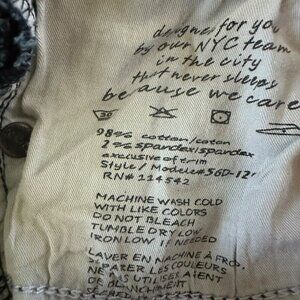 designed for you
by our NYC team
in the city
that never sleeps
because we care
30
98% cotton/coton
2% spandex/spandex
exclusive of trim
Style / Modele# 56D-12
RN# 114542
MACHINE WASH COLD
WITH LIKE COLORS
DO NOT BLEACH
TUMBLE DRY LOW
IRON LOW IF NEEDED
LAVER EN MACHINE À FROID
LES COULEURS
UTILISER
DE BLANCHIMENT